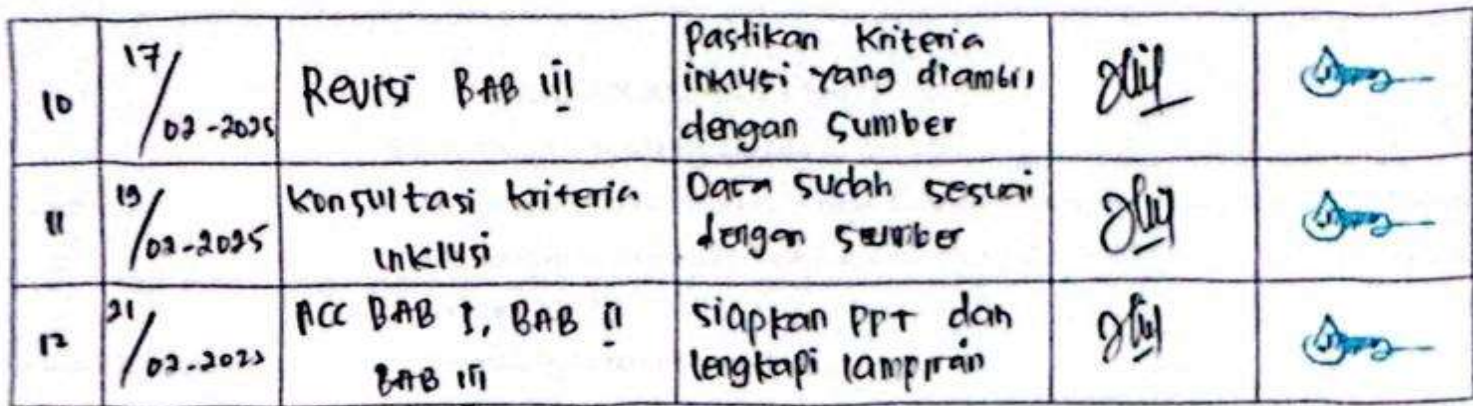 10
17/
02-2025
Revisi BAB III
Pastikan Kriteria
inklusi yang diambil
dengan Sumber
11
19/
02-2025
Konsultasi kriteria
inklusi
Data sudah sesuai
dengan sumber
12
21/
02-2025
ACC BAB I, BAB II
BAB III
siapkan PPT dan
lengkapi lampiran